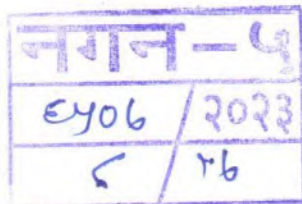 नगन-५
६५०७ / २०२३